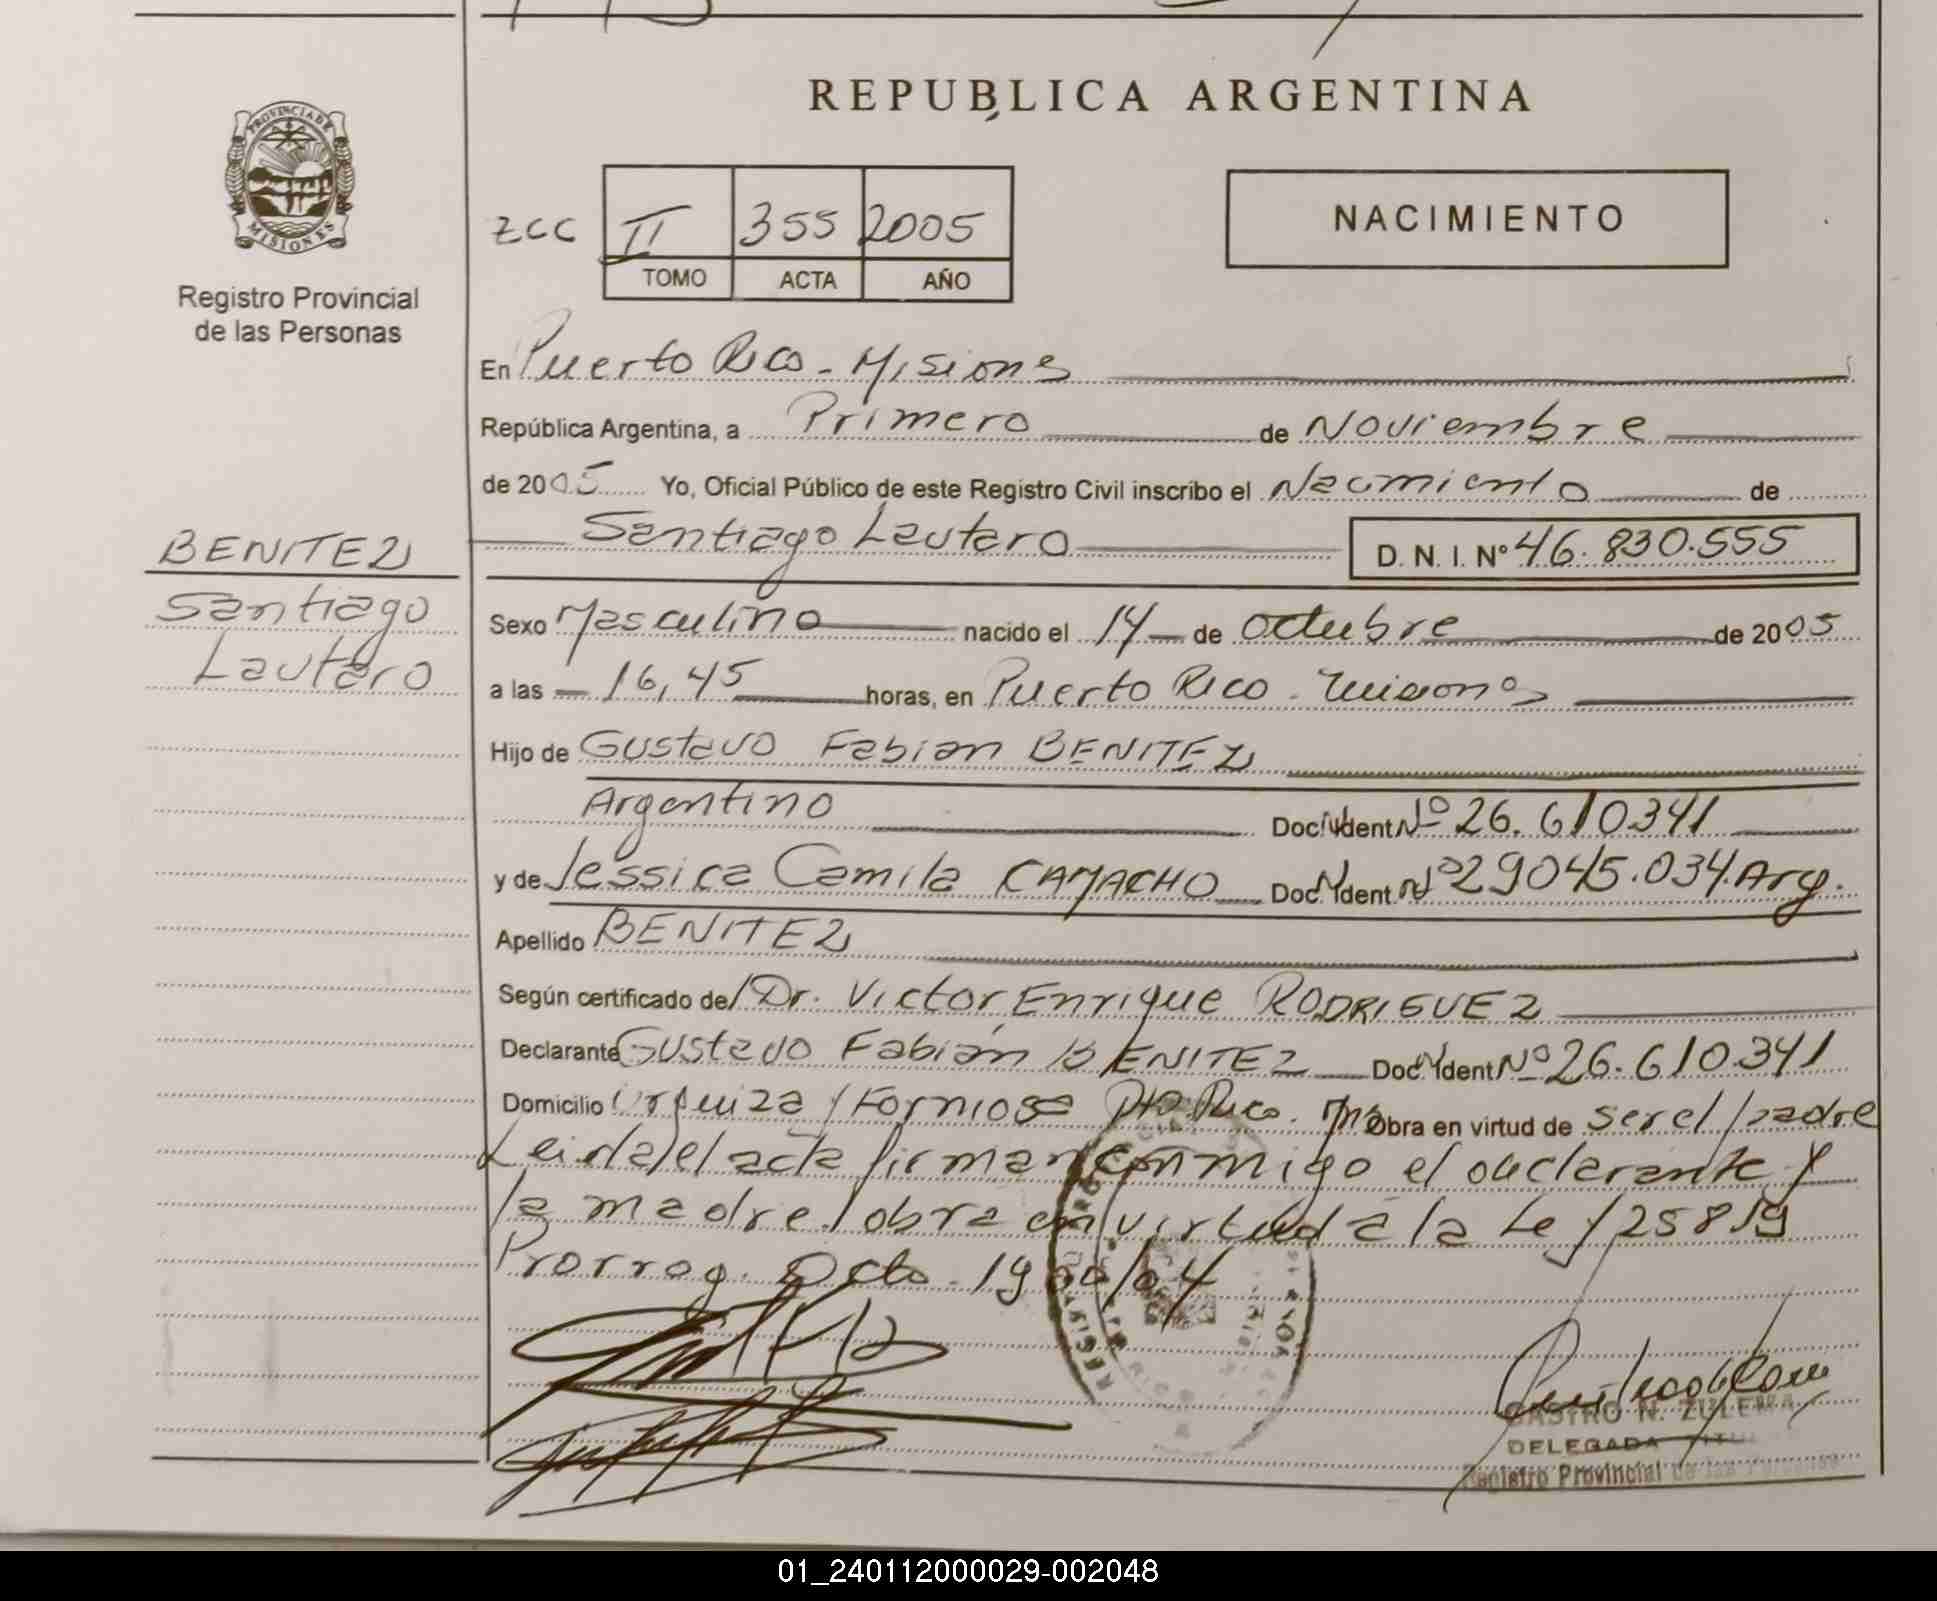 REPUBLICA ARGENTINA
PROVINCIA DE
MISIONES
Registro Provincial
de las Personas
ZCC II 355 2005
TOMO ACTA AÑO
NACIMIENTO
En Puerto Rico - Misiones
República Argentina, a Primero de Noviembre
de 2005 Yo, Oficial Público de este Registro Civil inscribo el Nacimiento de
Santiago Lautaro D. N. I. Nº 46.830.555
BENITEZ
Santiago
Lautaro
Sexo Masculino nacido el 14 de octubre de 2005
a las 16,45 horas, en Puerto Rico - Misiones
Hijo de Gustavo Fabian BENITEZ
Argentino Doc. Ident. Nº 26.610341
y de Jessica Camila CAMACHO Doc. Ident. Nº 29045.034. Arg.
Apellido BENITEZ
Según certificado de Dr. Victor Enrique RODRIGUEZ
Declarante Gustavo Fabián BENITEZ Doc. Ident Nº 26.610.341
Domicilio Urquiza y Formosa Pto. Rico. Obra en virtud de ser el padre
Leida el acta firman conmigo el declarante y
la madre obra en virtud a la Ley 25819
Prorrog. Dcto. 1900/04
CASTRO N. ZULEMA
DELEGADA
Registro Provincial de las Personas
01_240112000029-002048